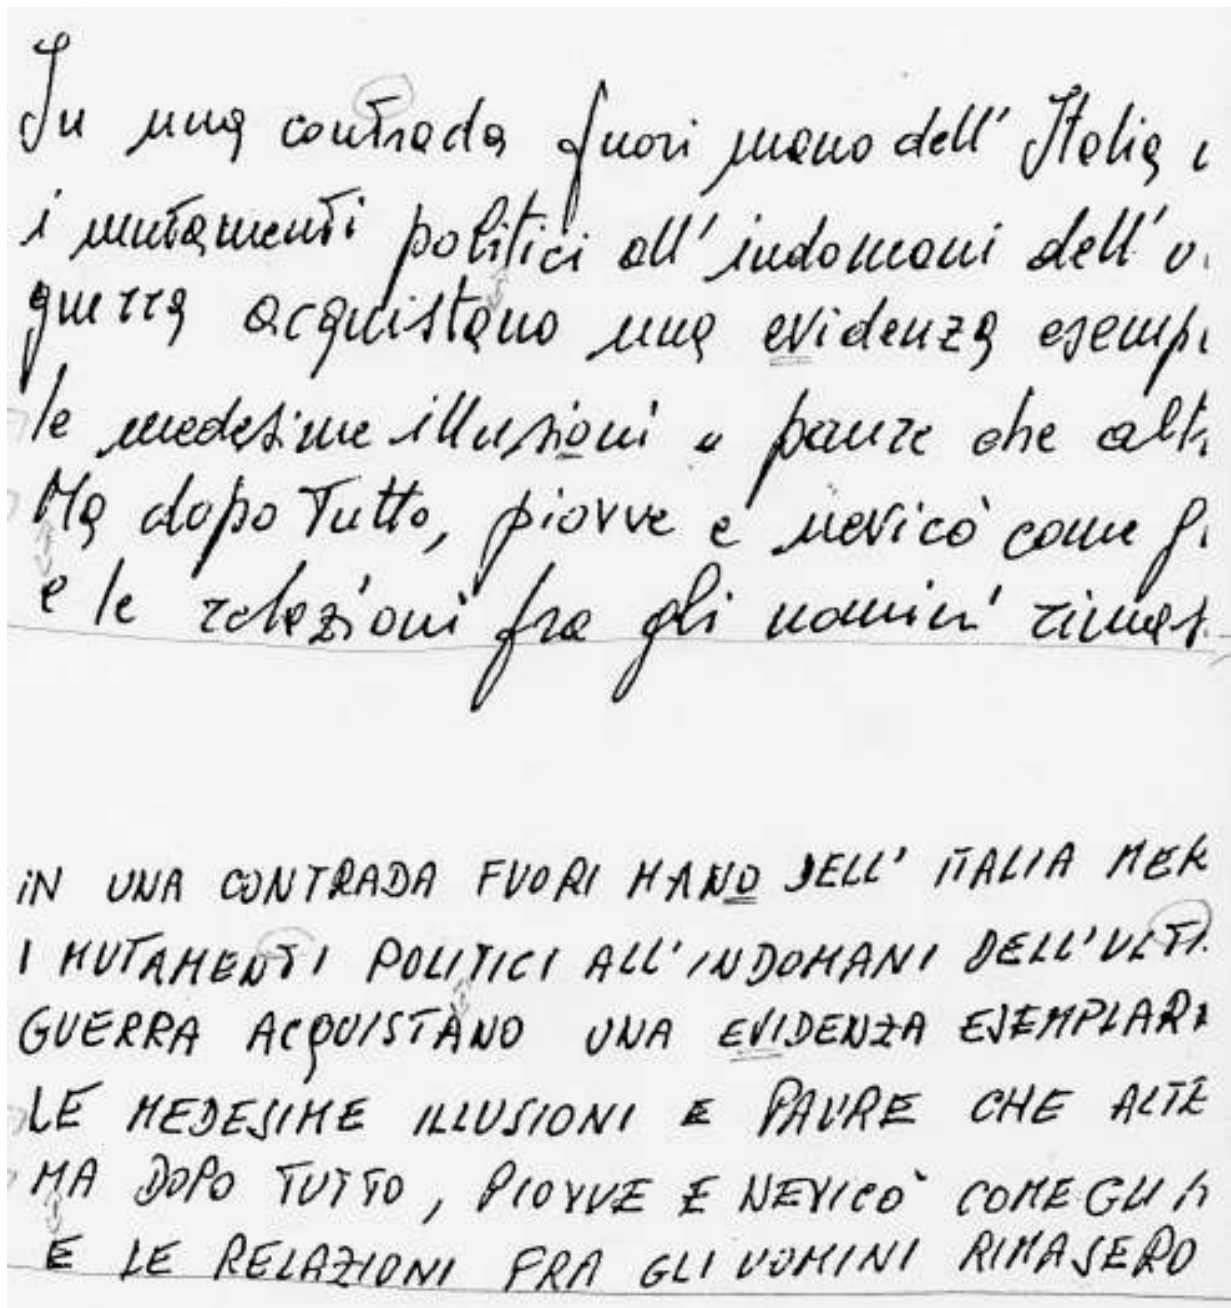 In una contrada fuori mano dell'Italia
i mutamenti politici all'indomani dell'
guerra acquistano una evidenza
le medesime illusioni e paure che
Ma dopo Tutto, piovve e nevicò come
e le relazioni fra gli uomini
IN UNA CONTRADA FUORI MANO DELL' ITALIA MER
I MUTAMENTI POLITICI ALL'INDOMANI DELL'ULTI
GUERRA ACQUISTANO UNA EVIDENZA ESEMPLARI
LE MEDESIME ILLUSIONI E PAURE CHE ALTE
MA DOPO TUTTO, PIOVVE E NEVICÒ COME GLI
E LE RELAZIONI FRA GLI UOMINI RIMASERO